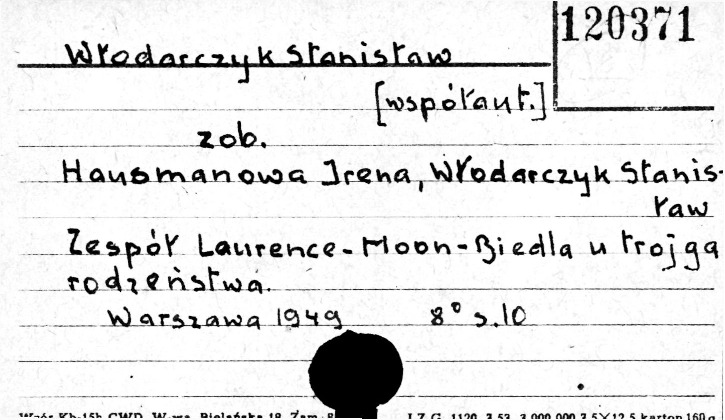 120371
Włodarczyk Stanisław
[współaut.]
zob.
Hausmanowa Irena, Włodarczyk Stanis-
ław
Zespół Laurence-Moon-Biedla u trojga
rodzeństwa.
Warszawa 1949 8° s.10
Wzór Kb-15b CWD, W-wa, Bielańska 18. Zam. I.Z.G. 1120 3.53 3.000.000 7,5×12,5 karton 160 g